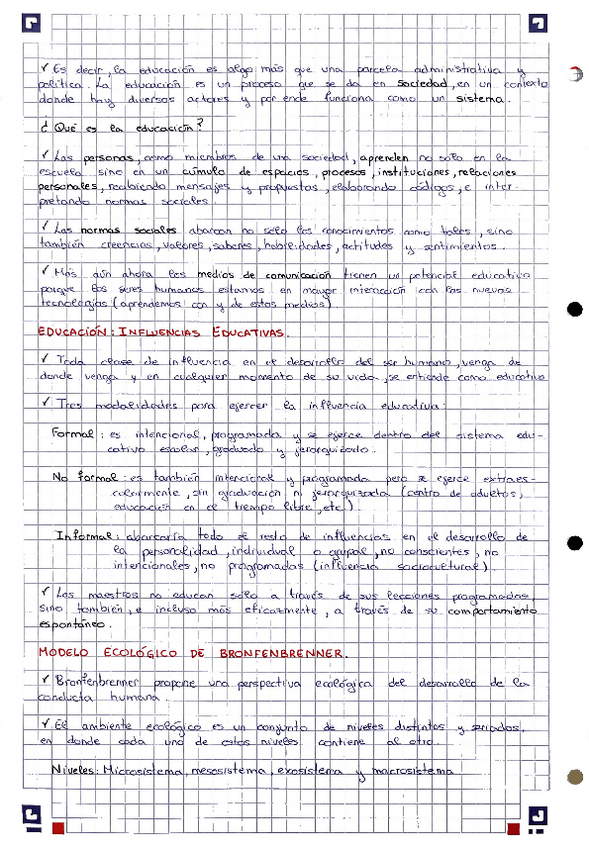 ✓ Es decir, la educación es algo más que una parcela administrativa y
política. La educación es un proceso que se da en sociedad, en un contexto
donde hay diversos actores y por ende funciona como un sistema.
¿Qué es la educación?
✓ Las personas, como miembros de una sociedad, aprenden no solo en la
escuela sino en un cúmulo de espacios, procesos, instituciones, relaciones
personales, recibiendo mensajes y propuestas, elaborando códigos, e inter-
pretando normas sociales.
✓ Las normas sociales abarcan no solo los conocimientos como tales, sino
también creencias, valores, saberes, habilidades, actitudes y sentimientos.
✓ Más aún ahora los medios de comunicación tienen un potencial educativo
porque los seres humanos estamos en mayor interacción con las nuevas
tecnologías (aprendemos con y de estos medios)
EDUCACIÓN: INFLUENCIAS EDUCATIVAS.
✓ Toda clase de influencia en el desarrollo del ser humano, venga de
donde venga y en cualquier momento de su vida, se entiende como educativa
✓ Tres modalidades para ejercer la influencia educativa:
Formal: es intencional, programada y se ejerce dentro del sistema edu-
cativo escolar, graduado y jerarquizado.
No formal: es también intencional y programada pero se ejerce extraes-
colarmente, sin graduación ni jerarquizada (centro de adultos,
educación en el tiempo libre, etc.)
Informal: abarcaría todo el resto de influencias en el desarrollo de
la personalidad, individual o grupal, no conscientes, no
intencionales, no programadas (influencia sociocultural).
✓ Los maestros no educan solo a través de sus lecciones programadas,
sino también, e incluso más eficazmente, a través de su comportamiento
espontáneo.
MODELO ECOLÓGICO DE BRONFENBRENNER.
✓ Bronfenbrenner propone una perspectiva ecológica del desarrollo de la
conducta humana.
✓ El ambiente ecológico es un conjunto de niveles distintos y seriados,
en donde cada uno de estos niveles contiene al otro.
Niveles: Microsistema, mesosistema, exosistema y macrosistema